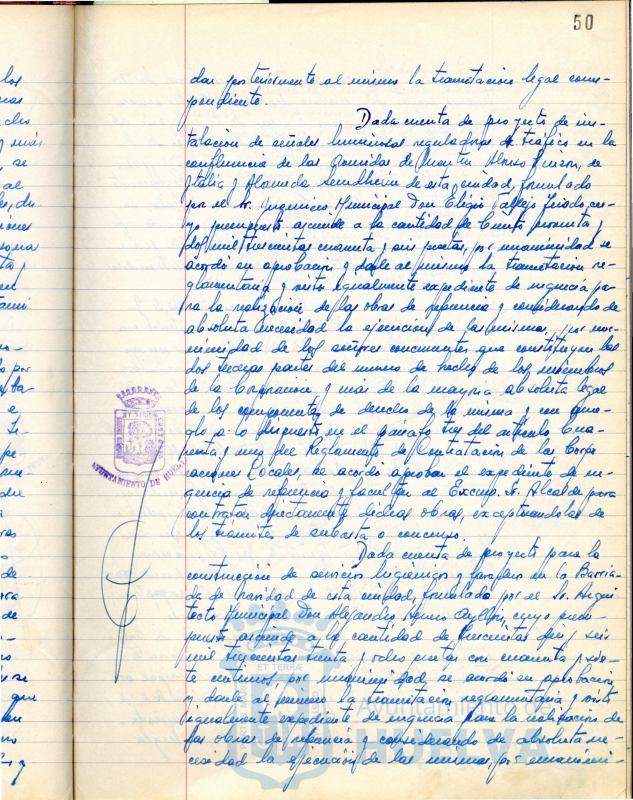 50
dar posteriormente al mismo la tramitación legal corres-
pondiente.
Dada cuenta de proyecto de ins-
talación de señales luminosas reguladoras de tráfico en la
confluencia de las Avenidas de Martín Alonso Pinzón, de
Italia y Alameda Sundheim de esta ciudad, formulado
por el Sr. Ingeniero Municipal Don Eligio Vallejo cu-
yo presupuesto asciende a la cantidad de ciento
dos mil trescientas cuarenta y seis pesetas, por unanimidad se
acordó su aprobación y darle al mismo la tramitación re-
glamentaria y visto igualmente expediente de urgencia pa-
ra la realización de las obras de referencia y considerando de
absoluta necesidad la ejecución de las mismas, por una-
nimidad de los señores concurrentes que constituyen las
dos terceras partes del número de hecho de los miembros
de la Corporación y más de la mayoría absoluta legal
de los componentes de derecho de la misma y con arre-
glo a lo dispuesto en el párrafo tres del artículo cua-
renta y uno del Reglamento de Contratación de las Corpo
raciones Locales, se acordó aprobar el expediente de ur-
gencia de referencia y facultar al Excmo. Sr. Alcalde para
contratar directamente dichas obras, exceptuandolas de
los trámites de subasta o concurso.
Dada cuenta de proyecto para la
construcción de servicios higiénicos y lavadero en la Barria-
da de Navidad de esta ciudad, formulado por el Sr. Arqui
tecto Municipal Don Alejandro Herrero Ayllón, cuyo presu-
puesto asciende a la cantidad de doscientas diez y seis
mil trescientas treinta y ocho pesetas con cuarenta y sie-
te centimos por unanimidad, se acordó su aprobación
y darle al mismo la tramitación reglamentaria y visto
igualmente expediente de urgencia para la realización de
las obras de referencia y considerando de absoluta ne-
cesidad la ejecución de las mismas, por unanimi-
AYUNTAMIENTO DE HUELVA
Ayuntamiento de
HUELVA